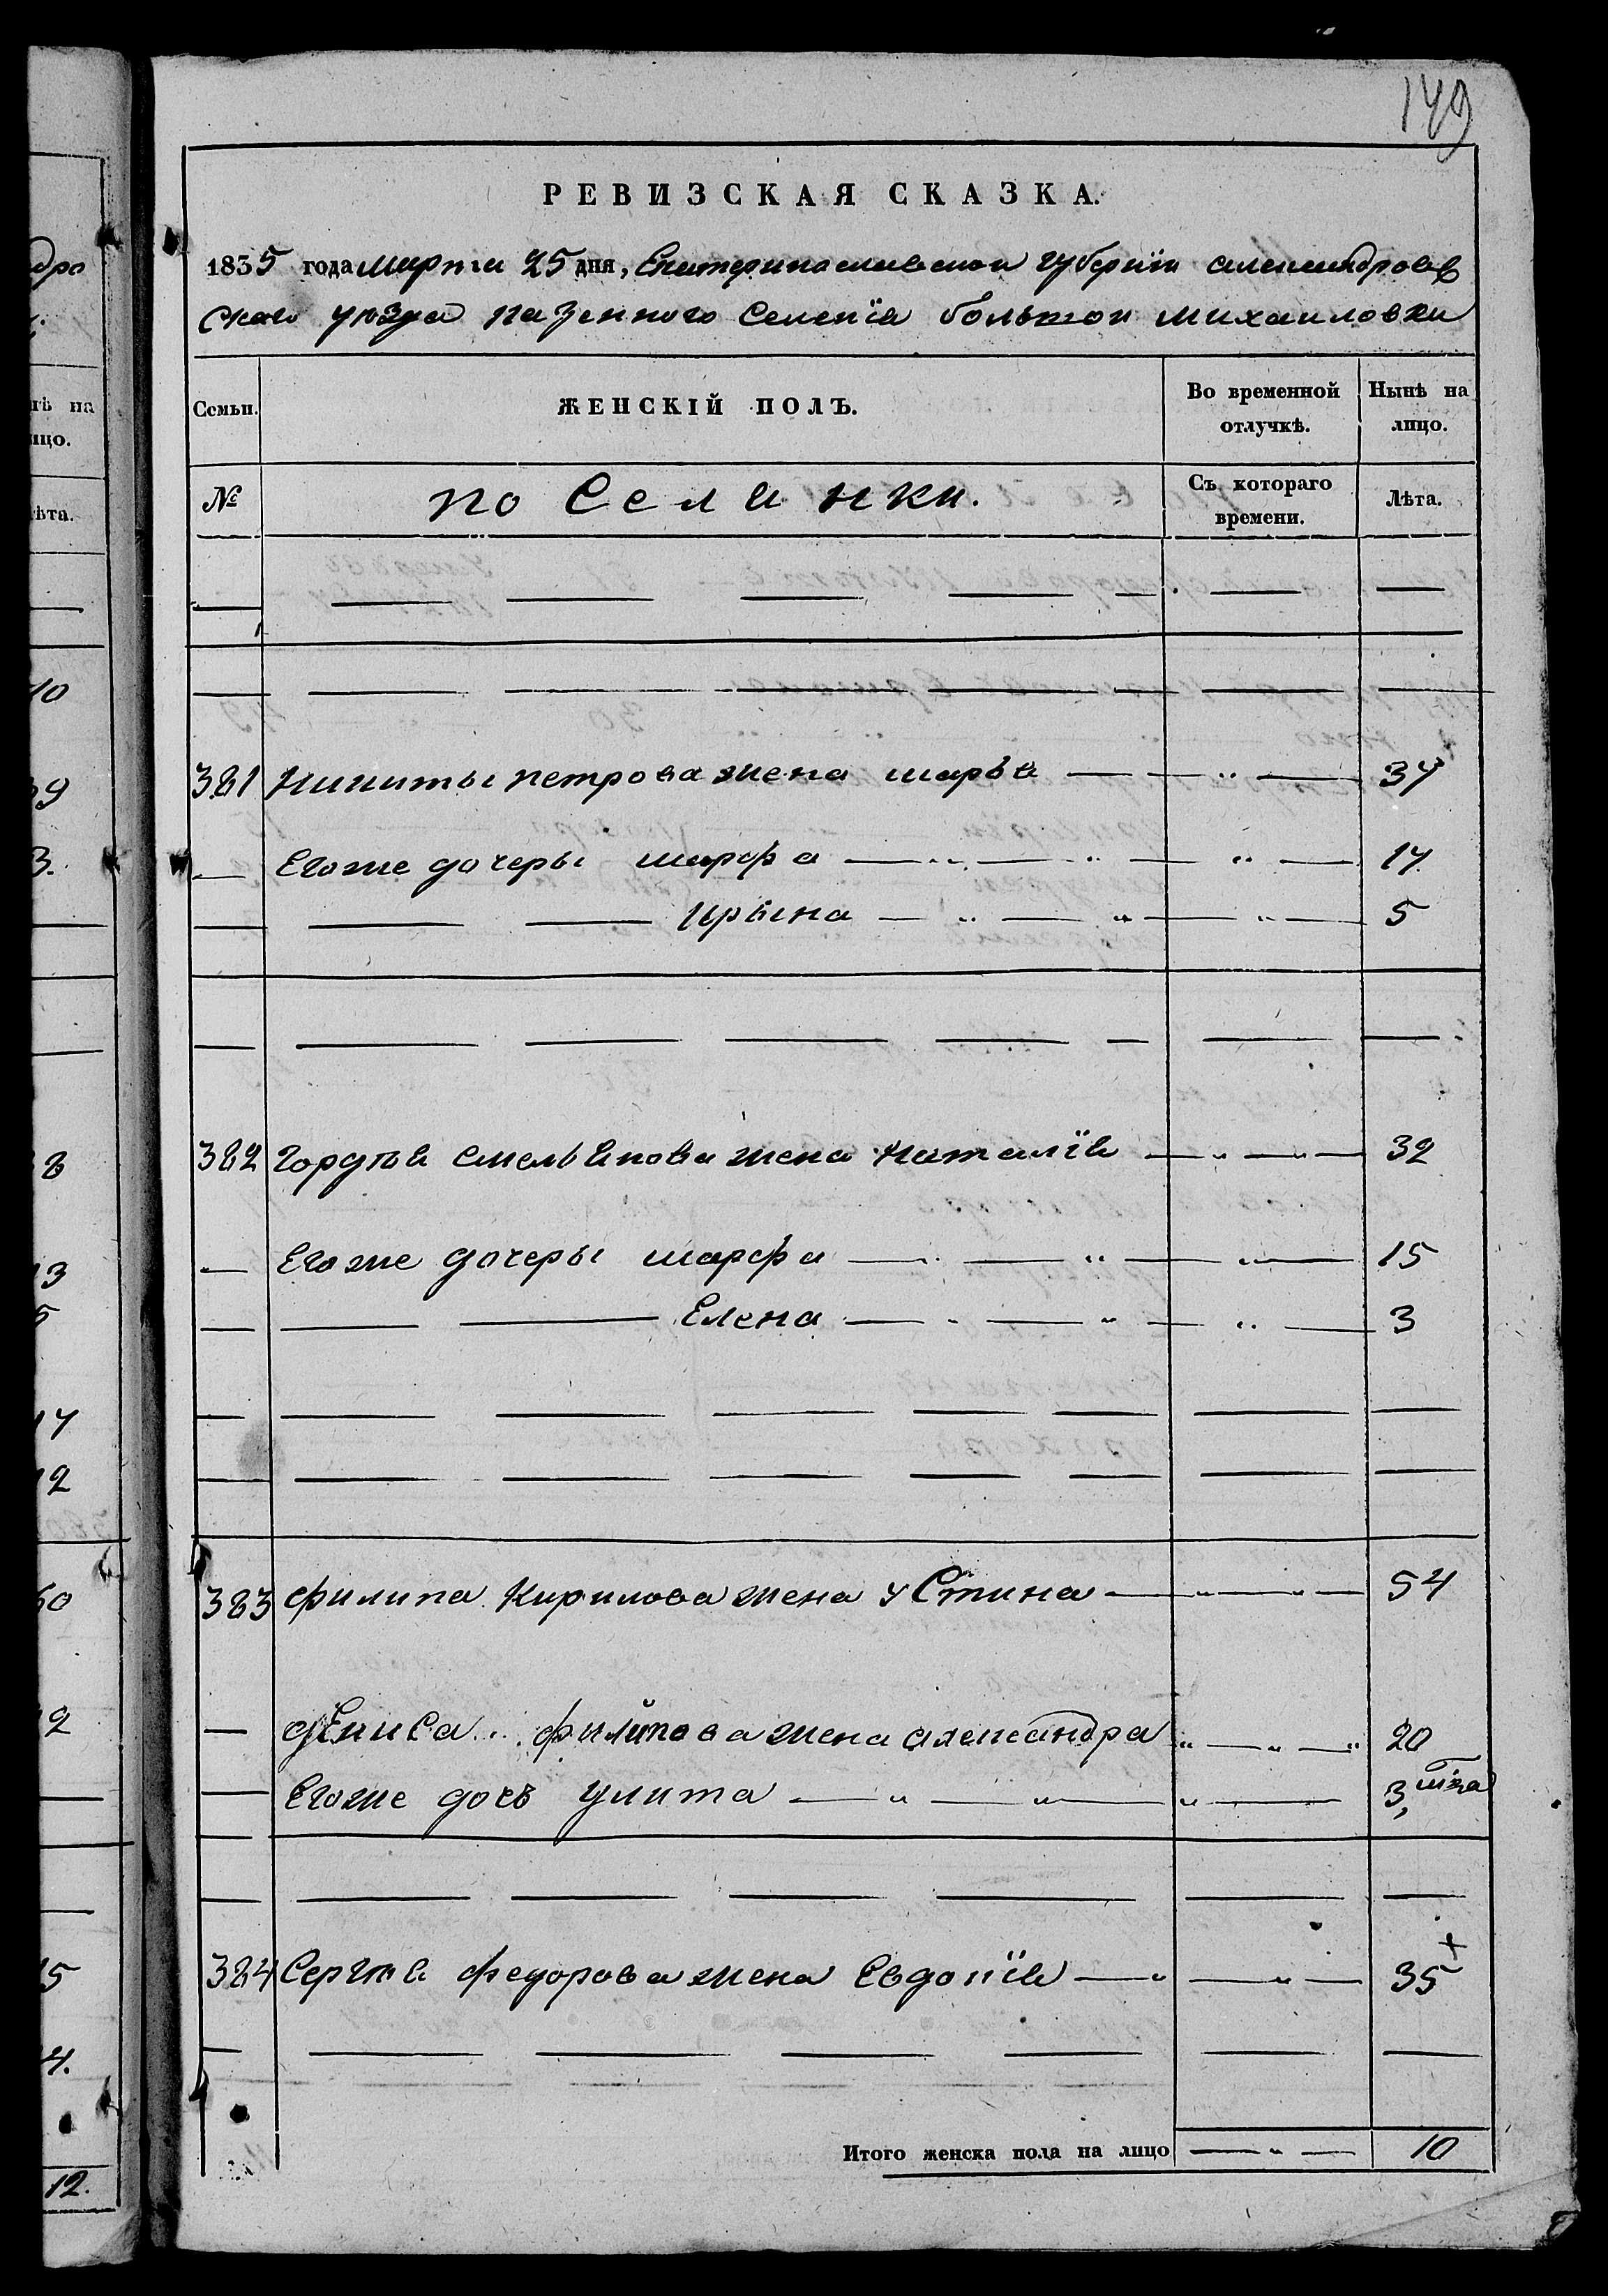 149
РЕВИЗСКАЯ СКАЗКА.
1835 года марта 25 дня, Екатеринославской губернїи александров
скаго уѣзда казенного Селенїя большой михаиловки
Семьи. ЖЕНСКІЙ ПОЛЪ. Во временной отлучкѣ. Нынѣ на лицо.
№ поселянки. Съ котораго времени. Лѣта.
381 Никиты петрова жена марья 34
Егоже дочеры марфа 14
Ирына 5
382 гордѣя емельянова жена Наталїя 32
Егоже дочеры марфа 15
Елена 3
383 филипа Кирилова жена уСтина 54
дЕниСа филипова жена александра 20
Егоже дочь улита 3
384 Сергѣя федорова жена Евдокїя 35
Итого женска пола на лицо 10
дро
нѣ на
лицо.
Лѣта.
12.